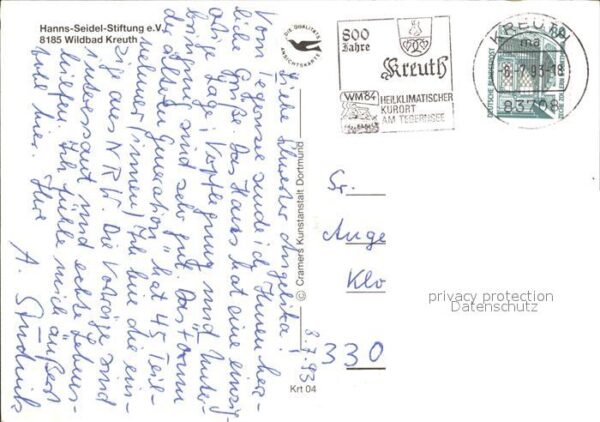 Hanns-Seidel-Stiftung e.V.
8185 Wildbad Kreuth
DIE QUALITÄTS
ANSICHTSKARTE
800
Jahre
Kreuth
WM 84
HEILKLIMATISCHER
KURORT
AM TEGERNSEE
KREUTH
ma
-8.-7.93-18
83708
DEUTSCHE BUNDESPOST
80
8.7.93
Liebe Schwester Angelika!
Vom Tegernsee sende ich Ihnen herz-
liche Grüße. Das Haus hat eine einzig-
artige Lage; Verpflegung und Unter-
bringung sind sehr gut. Das Forum
die ältere Generation" hat 45 Teil-
nehmer(innen) Ich bin die ein-
zig aus NRW. Die Vorträge sind
interessant und echte Lebens-
hilfen. Ich fühle mich äußerst
wohl hier. Ihre
A.
© Cramers Kunstanstalt Dortmund
Krt 04
Sr.
Ange
Klo
330
privacy protection
Datenschutz